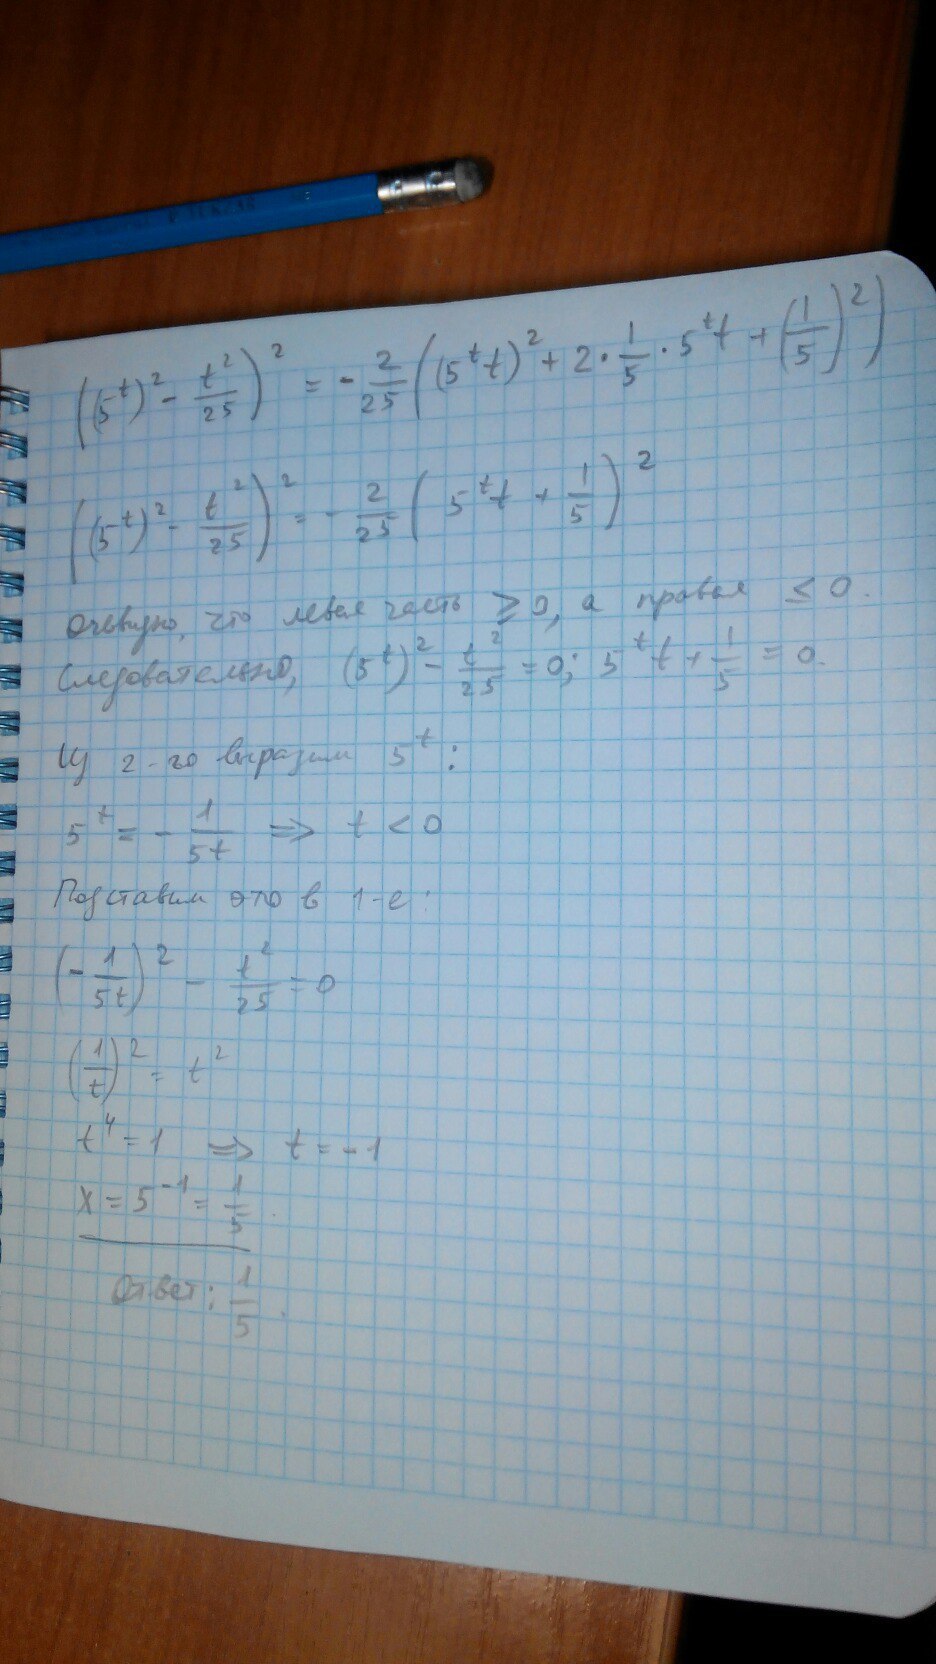 ((5^t)^2 - t^2/25)^2 = - 2/25 ((5^t t)^2 + 2 · 1/5 · 5^t t + (1/5)^2)
((5^t)^2 - t^2/25)^2 = - 2/25 (5^t t + 1/5)^2
Очевидно, что левая часть ≥ 0, а правая ≤ 0.
Следовательно, (5^t)^2 - t^2/25 = 0; 5^t t + 1/5 = 0.
Из 2-го выразим 5^t:
5^t = - 1/5t ⇒ t < 0
Подставим это в 1-е:
(- 1/5t)^2 - t^2/25 = 0
(1/t)^2 = t^2
t^4 = 1 ⇒ t = -1
x = 5^-1 = 1/5.
Ответ: 1/5.